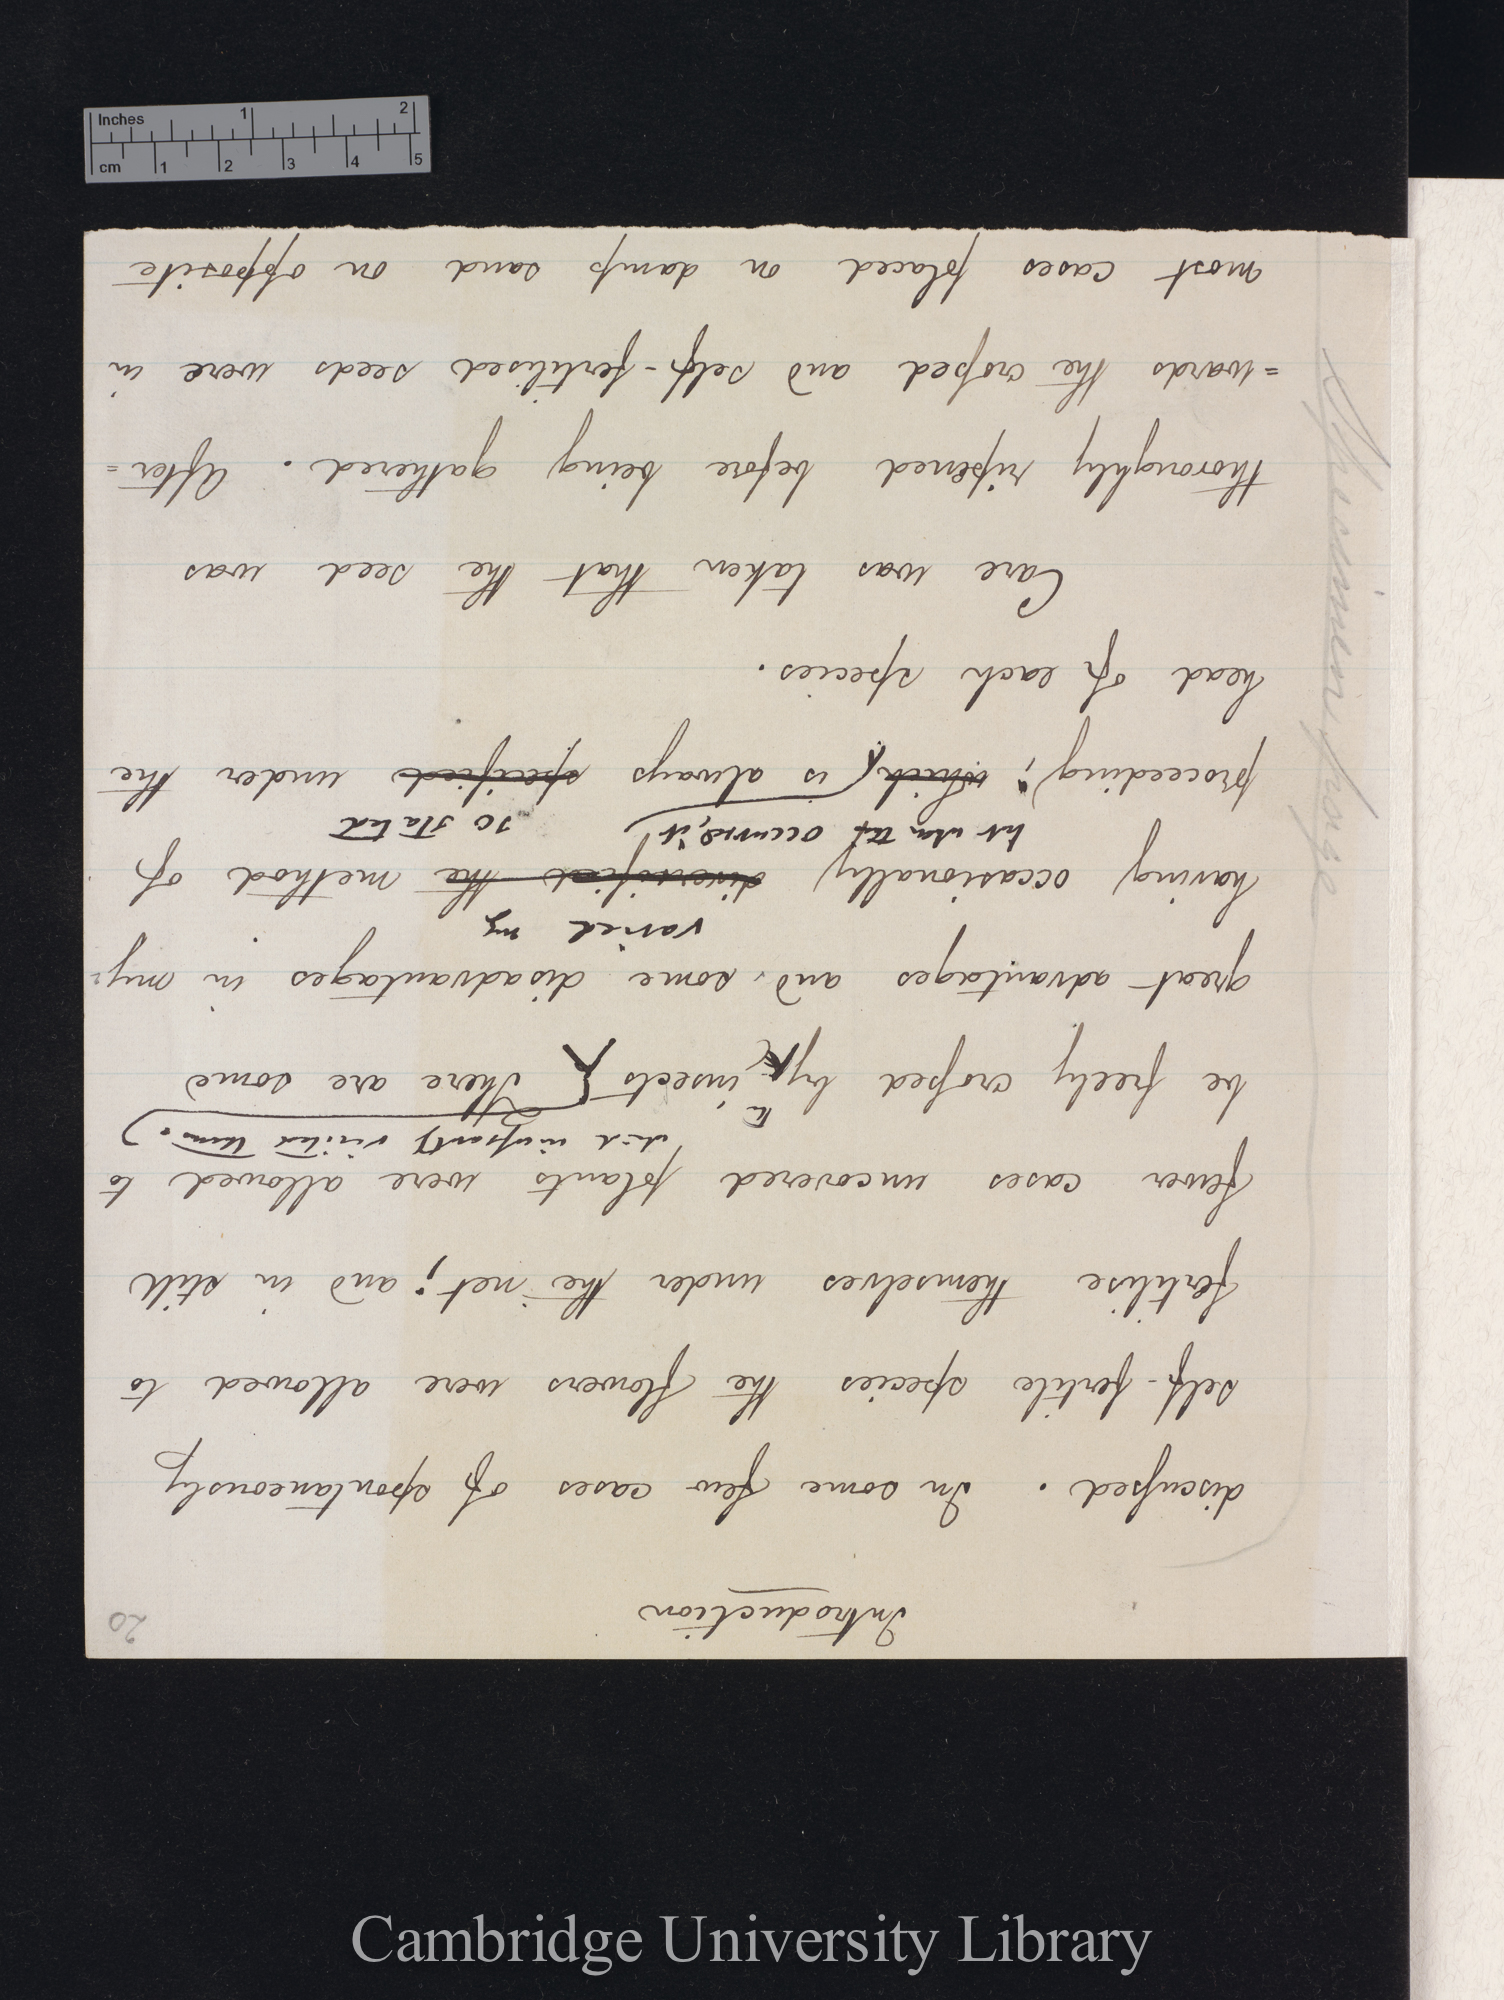 20
Introduction
discussed. In some few cases of spontaneously
self-fertile species the flowers were allowed to
fertilise themselves under the net; and in still
fewer cases uncovered plants were allowed to
which incessantly visited them.
be freely crossed by the insects. There are some
great advantages and some disadvantages in my
varied my
having occasionally diversified the method of
but when this occurred, it so stated
proceeding; which is always specified under the
head of each species.
Care was taken that the seed was
thoroughly ripened before being gathered. After=
=wards the crossed and self-fertilised seeds were in
most cases placed on damp sand on opposite
Specimen page
Inches 1 2
cm 1 2 3 4 5
Cambridge University Library